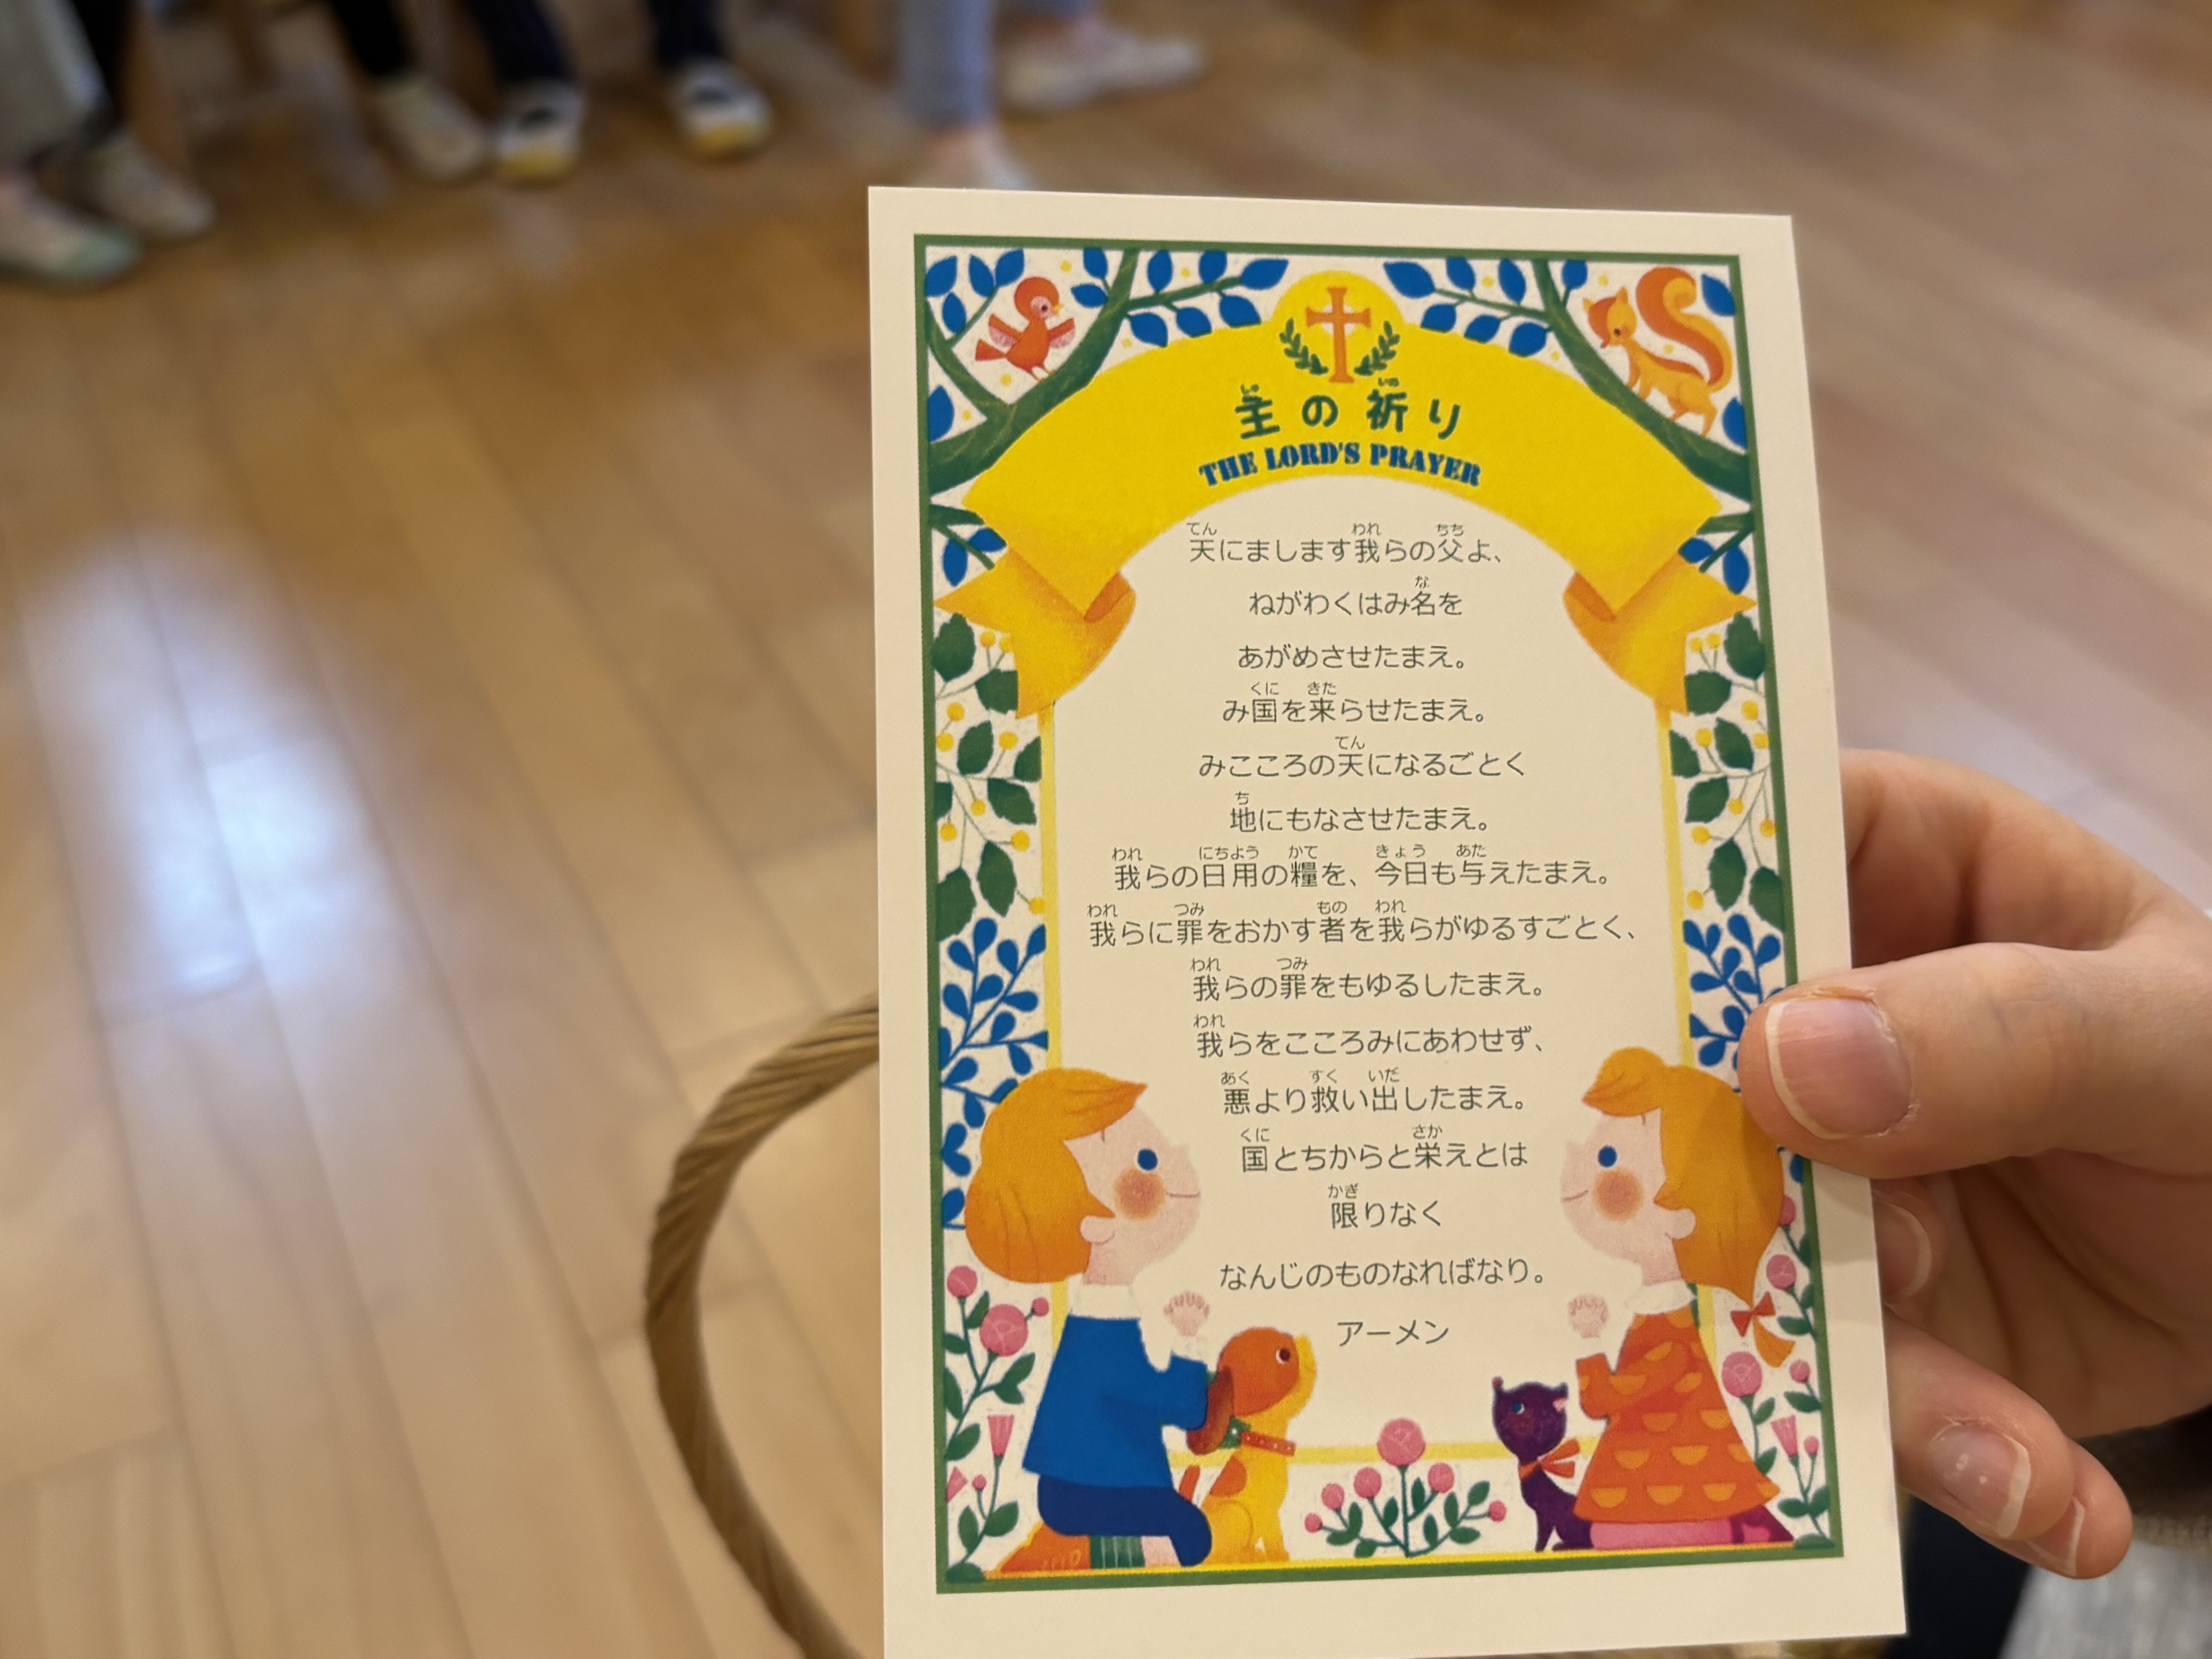 主の祈り
THE LORD'S PRAYER
天にまします我らの父よ、
ねがわくはみ名を
あがめさせたまえ。
み国を来らせたまえ。
みこころの天になるごとく
地にもなさせたまえ。
我らの日用の糧を、今日も与えたまえ。
我らに罪をおかす者を我らがゆるすごとく、
我らの罪をもゆるしたまえ。
我らをこころみにあわせず、
悪より救い出したまえ。
国とちからと栄えとは
限りなく
なんじのものなればなり。
アーメン